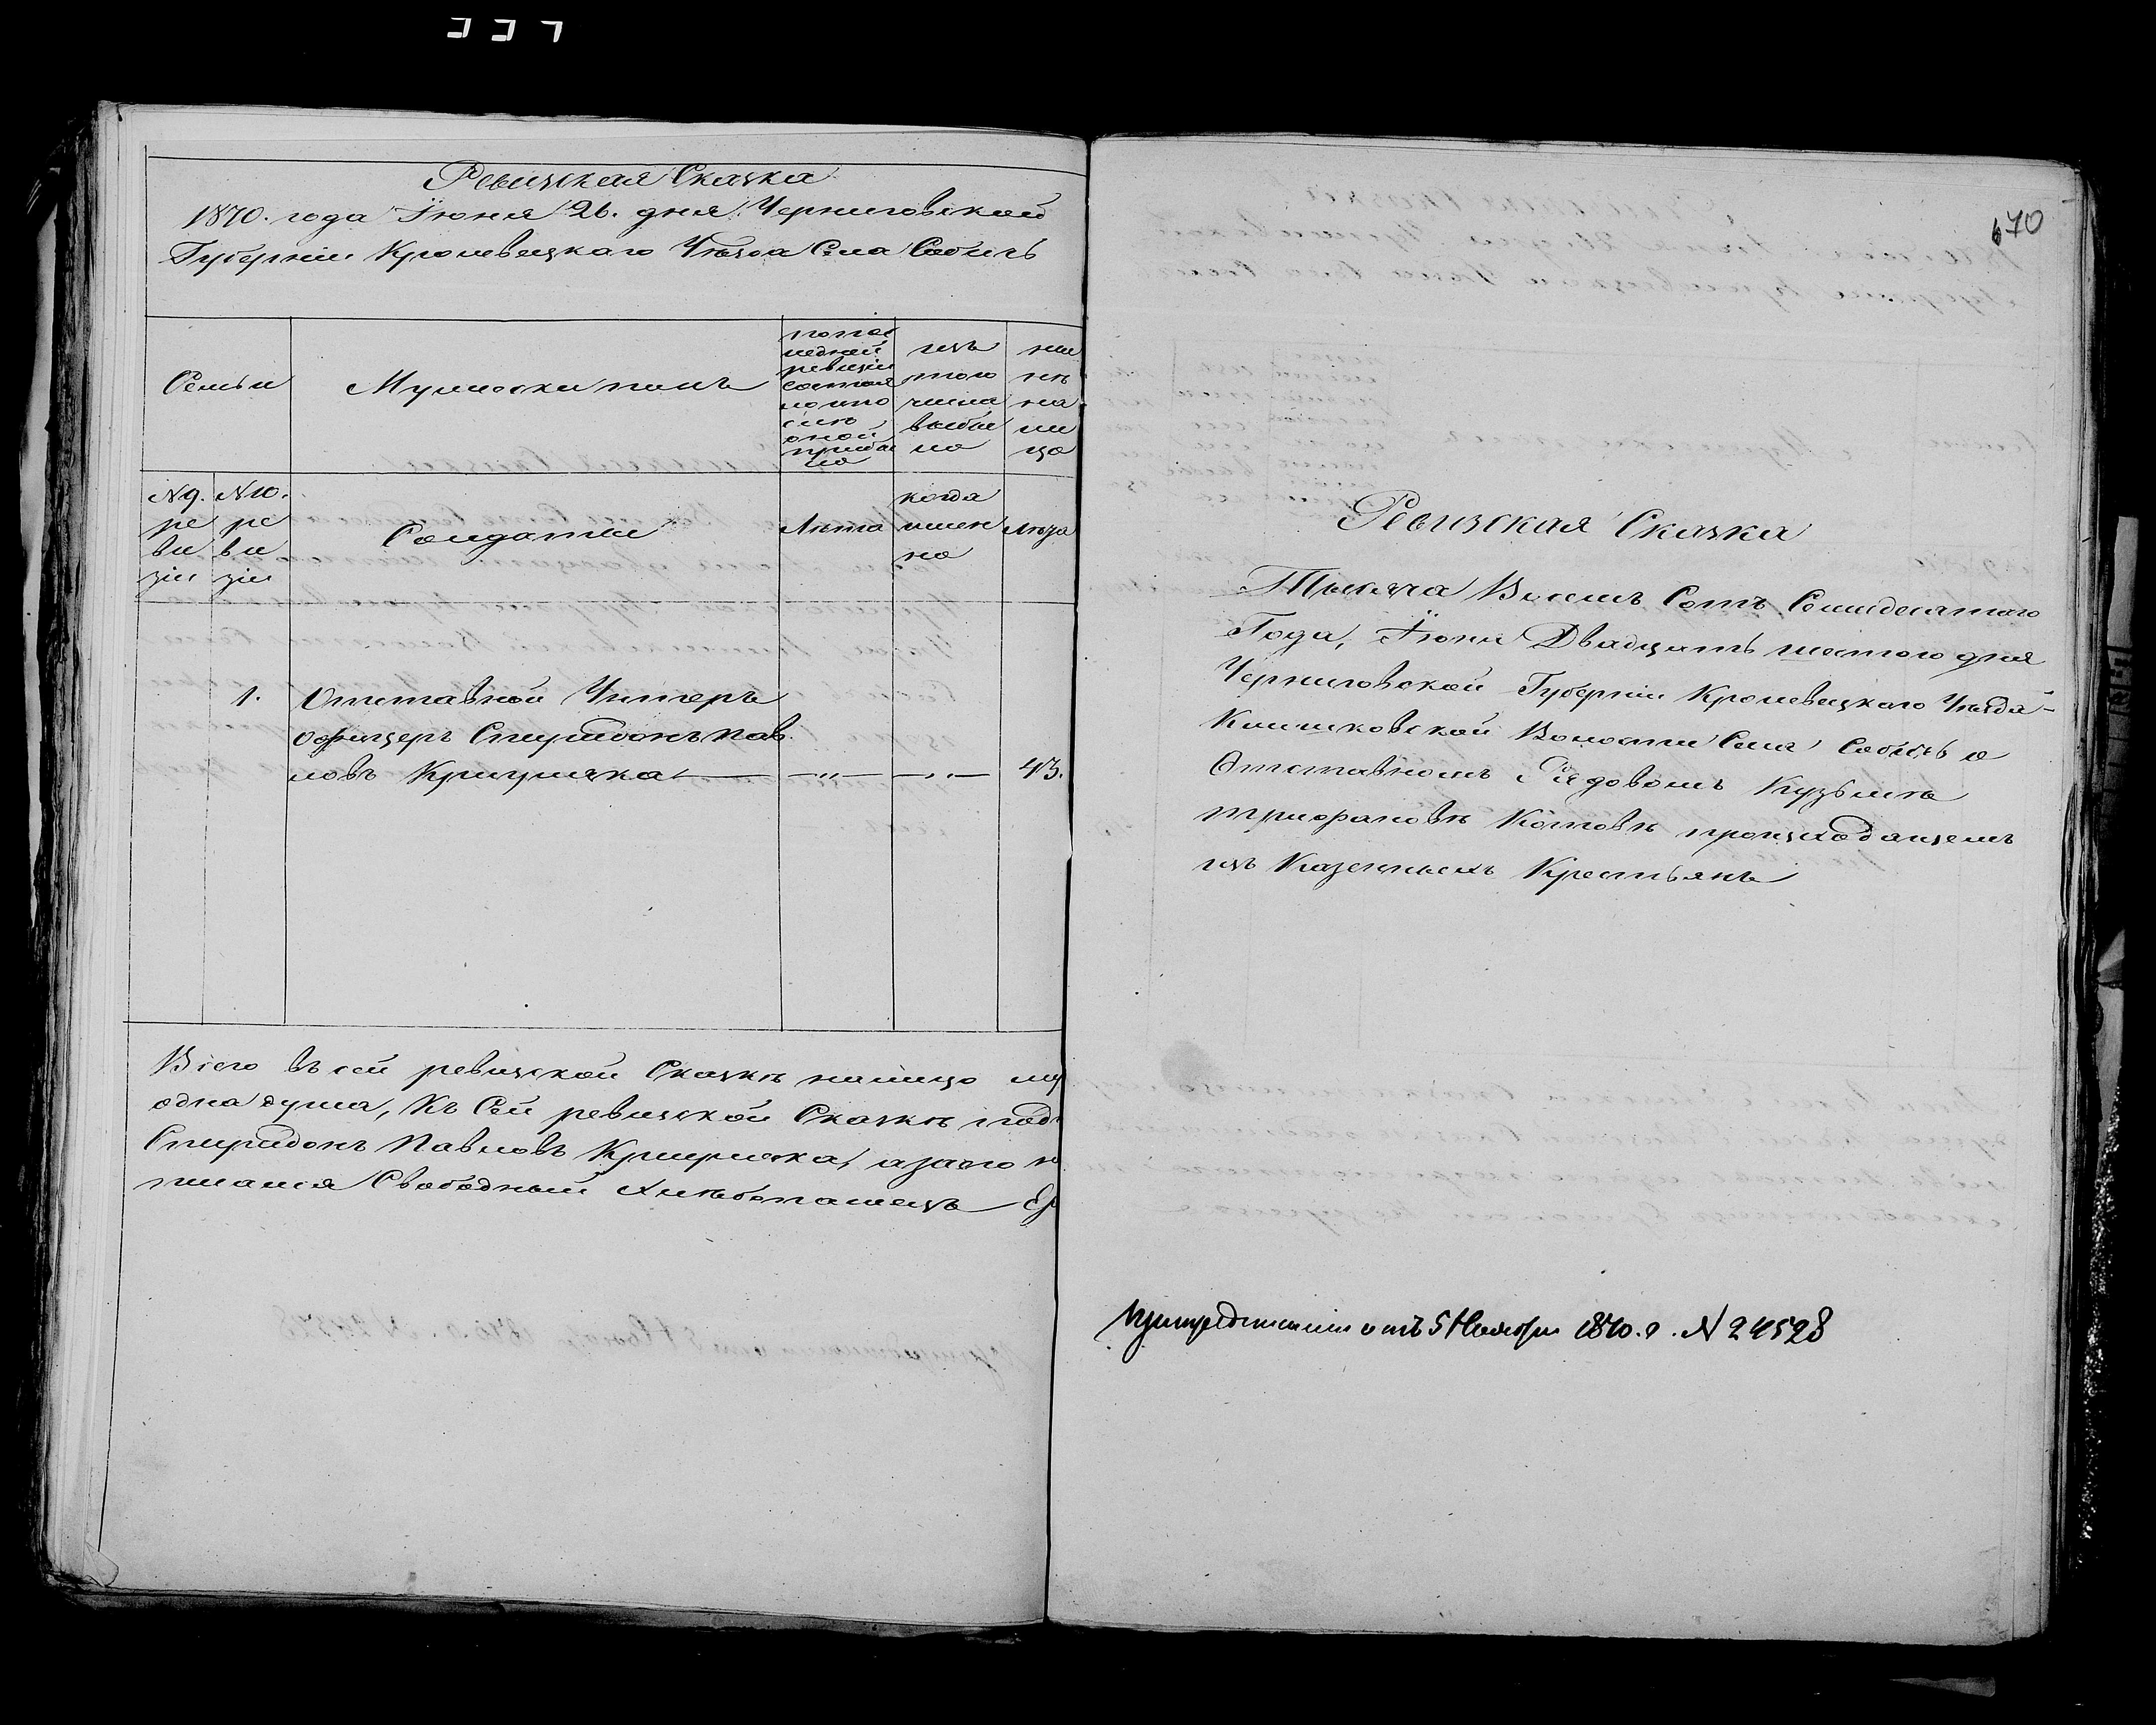 Ревизская Сказка
1870. года Іюня 26. дня. Черниговской
Губерніи Кролевецкаго Уезда Села Собичь
Семьи
Мужеска полъ
попос
ледней
ревизіи
состоя
ло
оной
прибы
ло
изъ
того
числа
выбы
ло
ны
нѣ
на
ли
цо
№ 9.
ре
ви
зіи
№ 10.
ре
ви
зіи
Солдатии
Лѣта
когда
имен
но
Лѣта
1.
Отставной Унтеръ
офицеръ Спиридонъ Пав
ловъ
—„—
—„—
43.
Всего въ сей ревизской Сказкѣ налицо му
одна душа, Къ Сей ревизской Сказкѣ
Спиридонъ Павловъ а за него
Свободный хлебопашецъ
670
Ревизская Сказка
Тысяча Восемь Сотъ Семидесятого
Года, Іюня Двадцать шестого дня
Черниговской Губерніи Кролевецкаго Уѣзда
Клишковской Волости Села Собичь о
Отставномъ Рядовомъ Кузьмѣ
Трифановѣ Котовѣ происходящемъ
изъ Казенныхъ Крестьянъ
При предписаніи отъ 5 Ноября 1870. г. № 24528